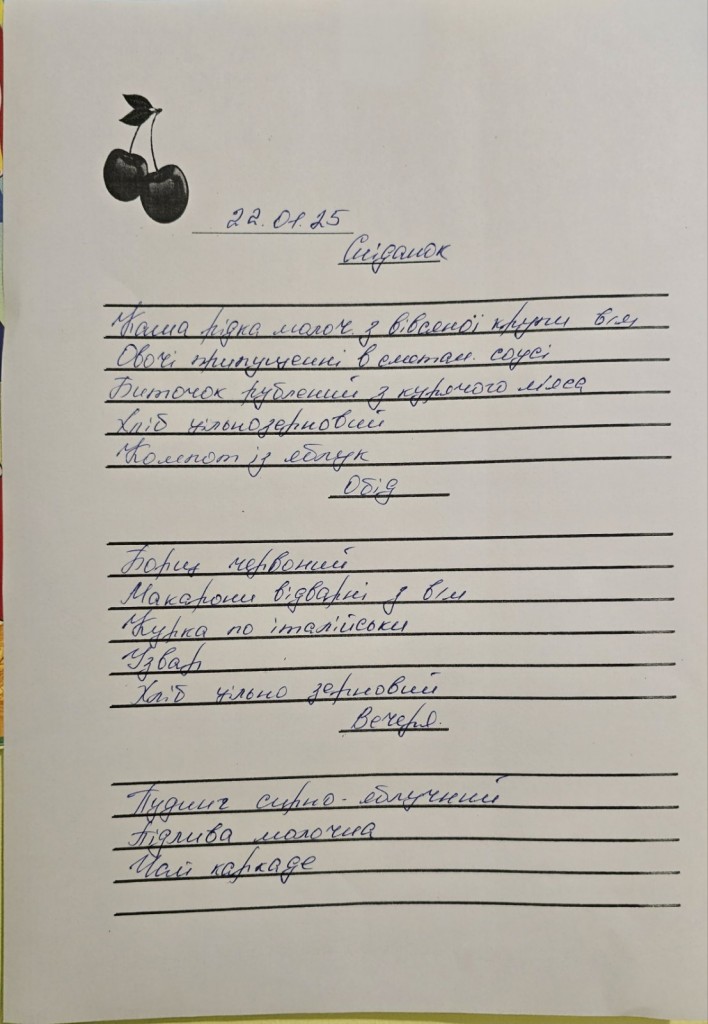 22.01.25
Сніданок
Каша рідка молоч. з вівсяної крупи в/м
Овочі припущенні в сметан. соусі
Биточок рублений з курячого м'яса
Хліб цільнозерновий
Компот із яблук
Обід
Борщ червоний
Макарони відварні з в/м
Курка по італійськи
Узвар
Хліб цільно зерновий
Вечеря.
Пудинг сирно-яблучний
Підлива молочна
Чай каркаде